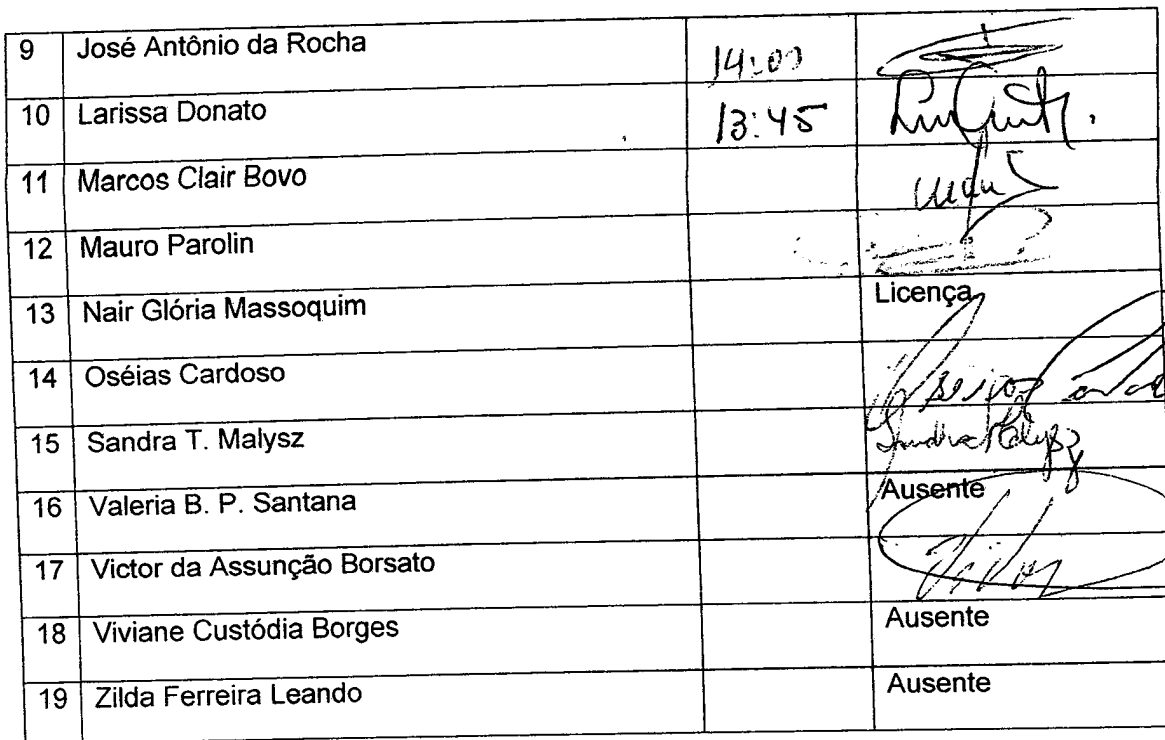 9 José Antônio da Rocha 14:00
10 Larissa Donato 13:45
11 Marcos Clair Bovo
12 Mauro Parolin
13 Nair Glória Massoquim Licença
14 Oséias Cardoso
15 Sandra T. Malysz Sandra Malysz
16 Valeria B. P. Santana Ausente
17 Victor da Assunção Borsato
18 Viviane Custódia Borges Ausente
19 Zilda Ferreira Leando Ausente